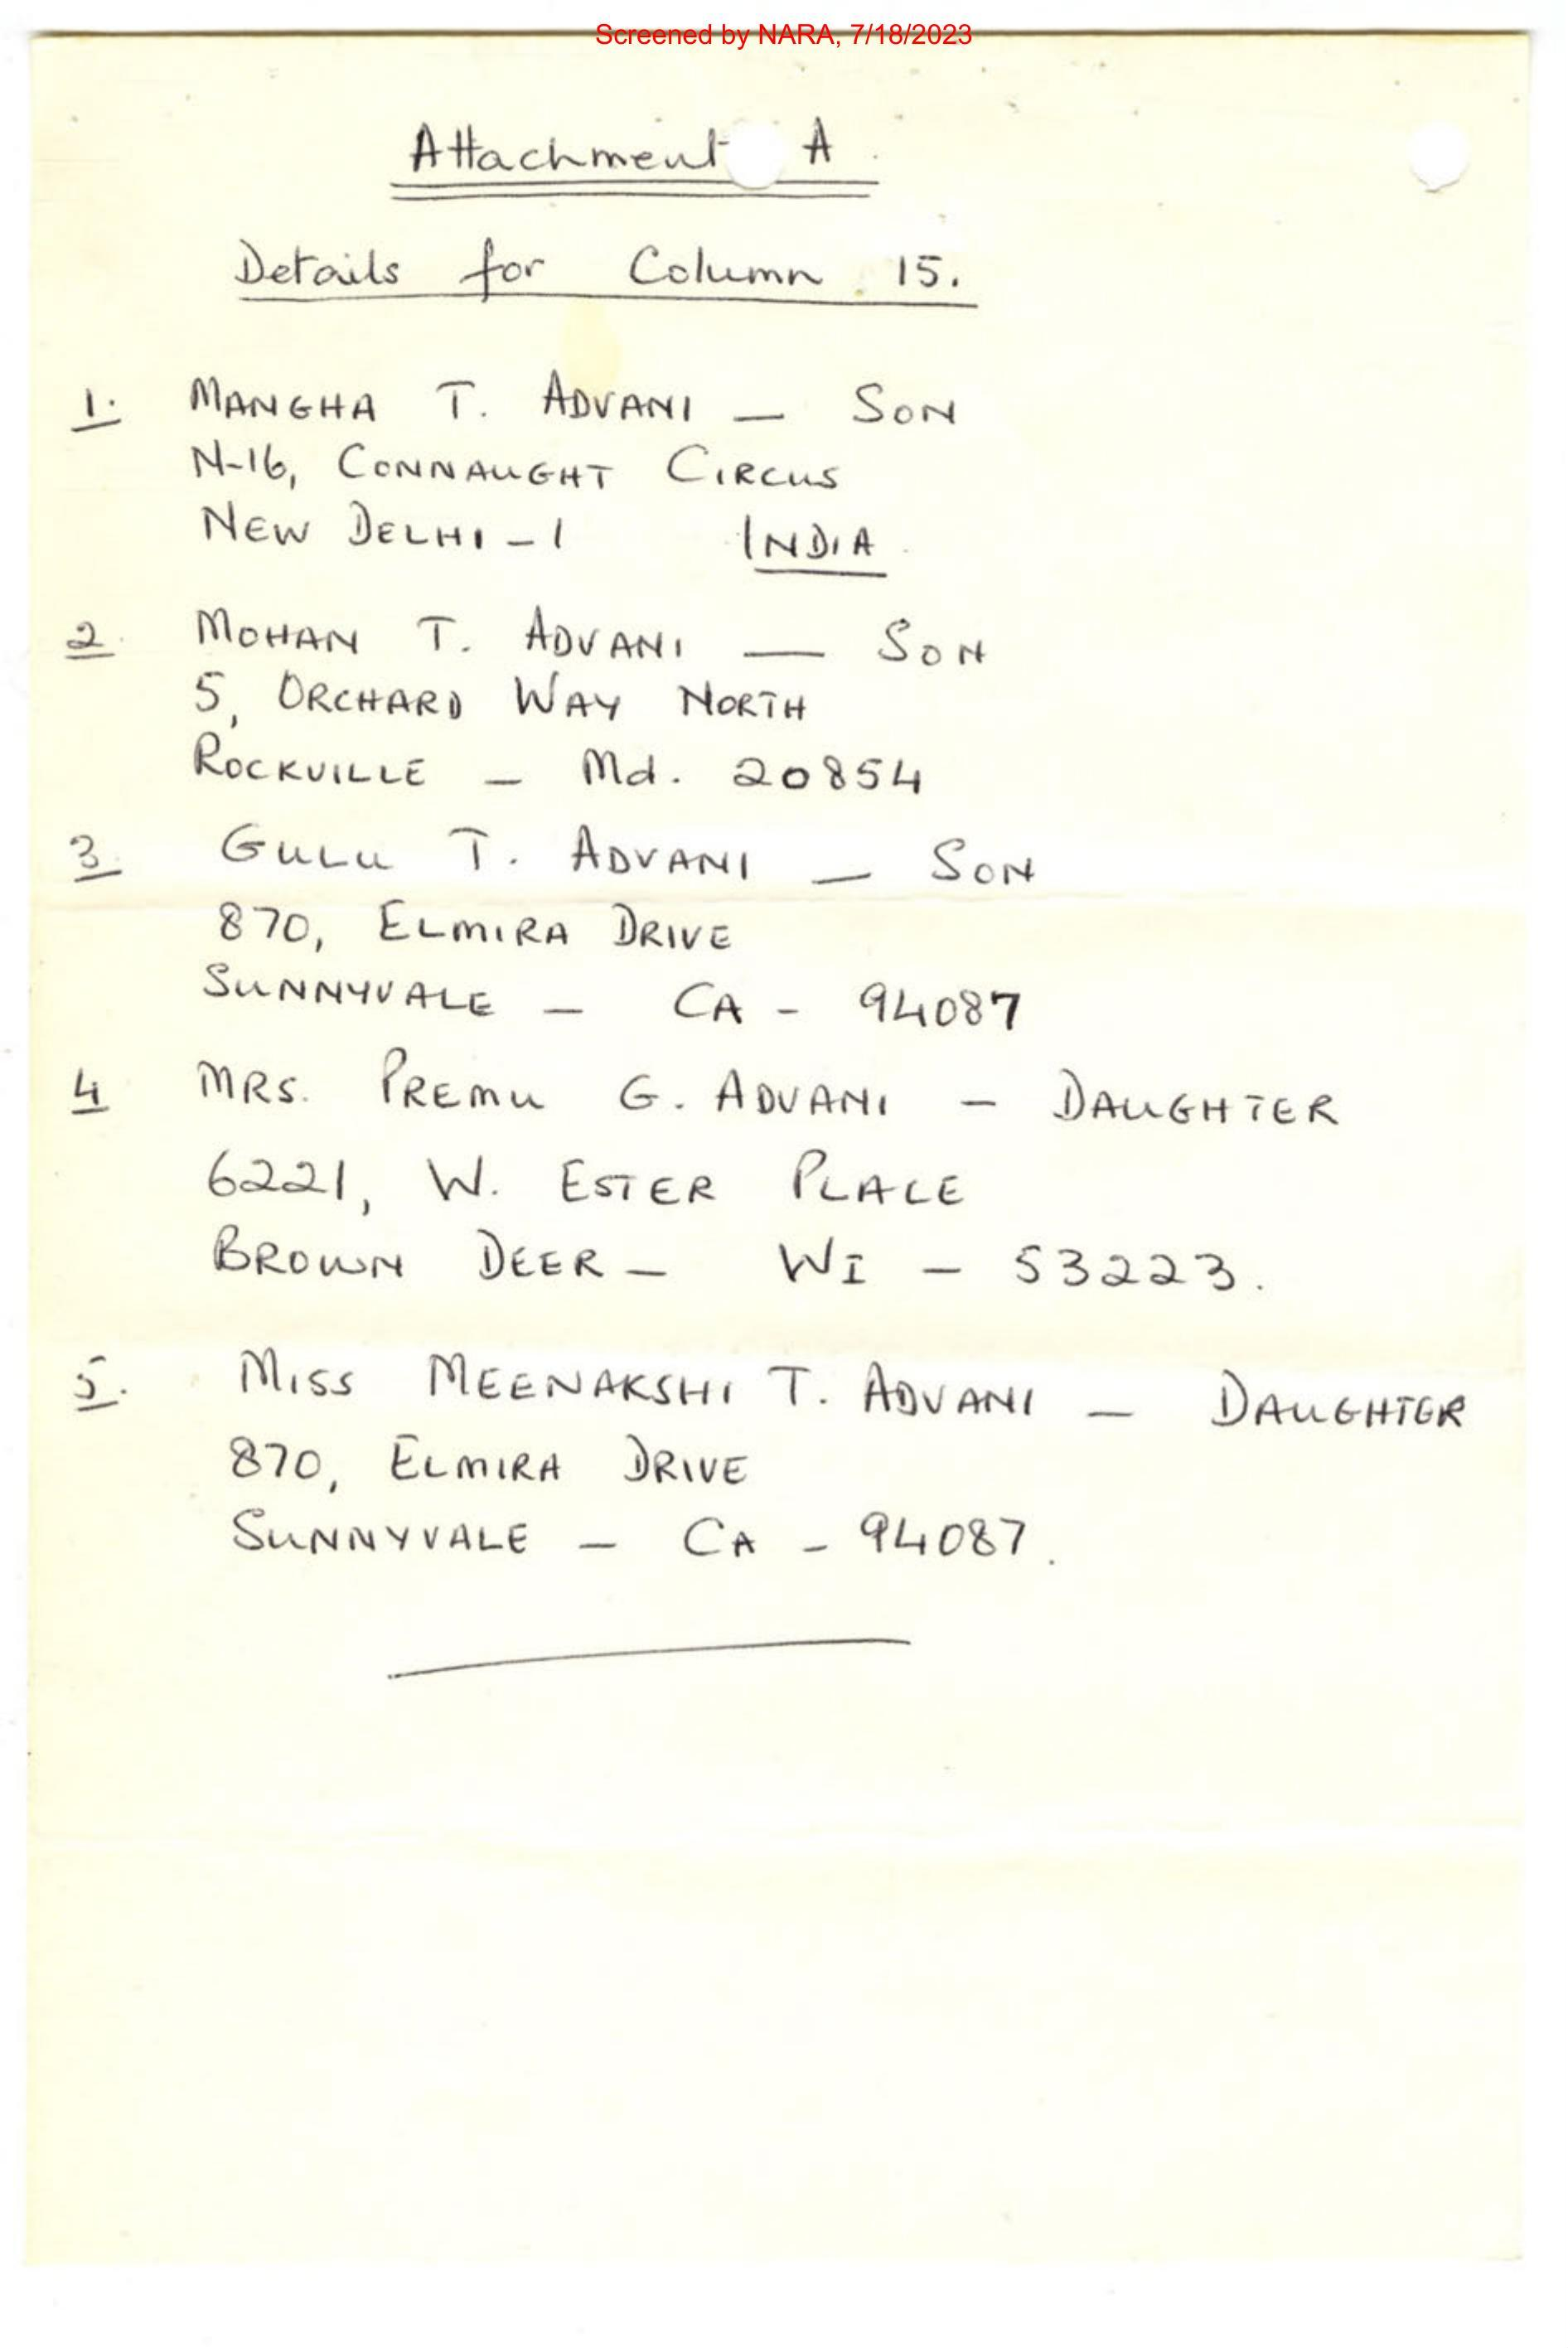 Screened by NARA, 7/18/2023
Attachment A
Details for Column 15.
1. MANGHA T. ADVANI — SON
N-16, CONNAUGHT CIRCUS
NEW DELHI - 1 INDIA
2. MOHAN T. ADVANI — SON
5, ORCHARD WAY NORTH
ROCKVILLE - Md. 20854
3. GULU T. ADVANI — SON
870, ELMIRA DRIVE
SUNNYVALE - CA - 94087
4 MRS. PREMU G. ADVANI - DAUGHTER
6221, W. ESTER PLACE
BROWN DEER - WI - 53223.
5. MISS MEENAKSHI T. ADVANI - DAUGHTER
870, ELMIRA DRIVE
SUNNYVALE - CA - 94087.